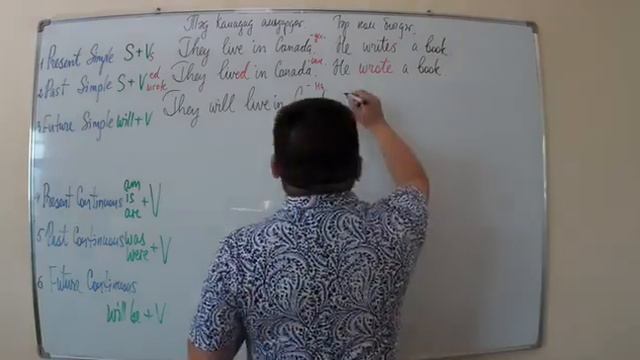 Тэд Канадад амьдардаг. Тэр ном бичдэг.
1 Present Simple S+Vs They live in Canada. He writes a book
2 Past Simple S+V ed wrote They lived in Canada. He wrote a book.
3 Future Simple will+V They will live in
4 Present Continuous am is are +V
5 Past Continuous was were +V
6 Future Continuous
will be +V